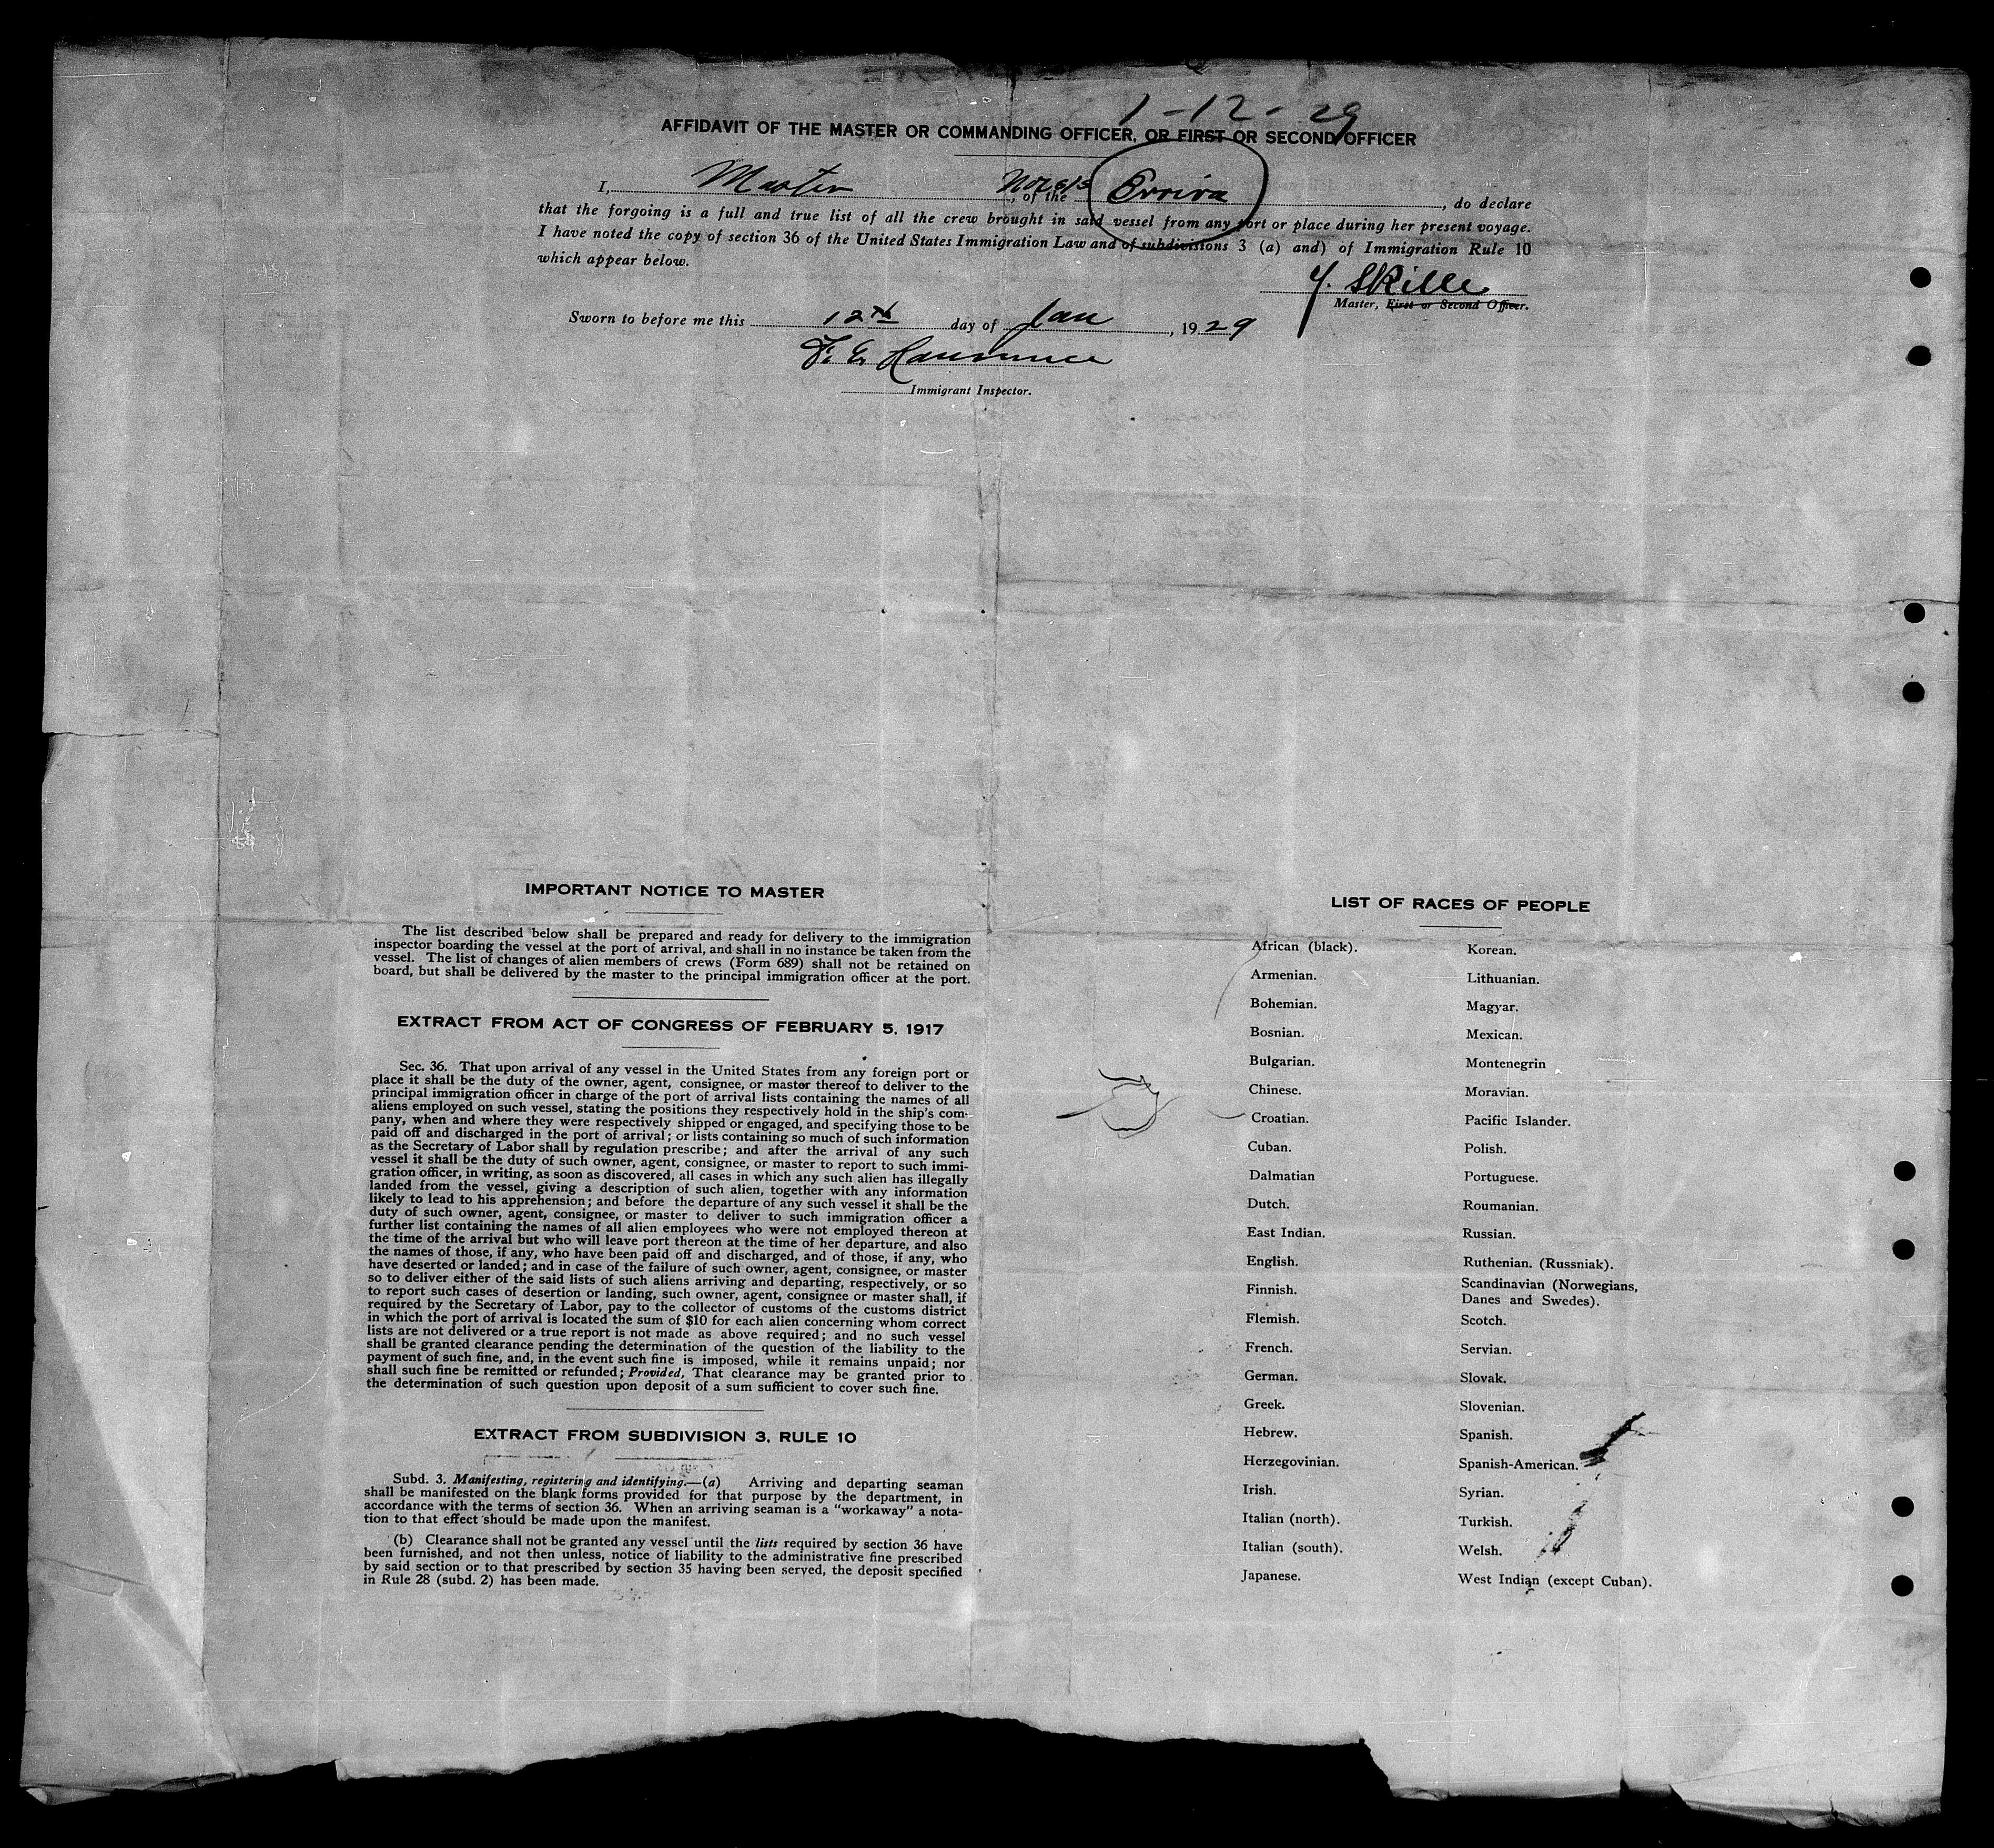 1-12-29
AFFIDAVIT OF THE MASTER OR COMMANDING OFFICER, OR FIRST OR SECOND OFFICER
I, Master, of the Nor s/s Erviva, do declare
that the forgoing is a full and true list of all the crew brought in said vessel from any port or place during her present voyage.
I have noted the copy of section 36 of the United States Immigration Law and of subdivisions 3 (a) and) of Immigration Rule 10
which appear below.
Y. Skille
Master, First or Second Officer.
Sworn to before me this 12th day of Jan, 1929
F. E.
Immigrant Inspector.
IMPORTANT NOTICE TO MASTER
The list described below shall be prepared and ready for delivery to the immigration
inspector boarding the vessel at the port of arrival, and shall in no instance be taken from the
vessel. The list of changes of alien members of crews (Form 689) shall not be retained on
board, but shall be delivered by the master to the principal immigration officer at the port.
EXTRACT FROM ACT OF CONGRESS OF FEBRUARY 5, 1917
Sec. 36. That upon arrival of any vessel in the United States from any foreign port or
place it shall be the duty of the owner, agent, consignee, or master thereof to deliver to the
principal immigration officer in charge of the port of arrival lists containing the names of all
aliens employed on such vessel, stating the positions they respectively hold in the ship's com-
pany, when and where they were respectively shipped or engaged, and specifying those to be
paid off and discharged in the port of arrival; or lists containing so much of such information
as the Secretary of Labor shall by regulation prescribe; and after the arrival of any such
vessel it shall be the duty of such owner, agent, consignee, or master to report to such immi-
gration officer, in writing, as soon as discovered, all cases in which any such alien has illegally
landed from the vessel, giving a description of such alien, together with any information
likely to lead to his apprehension; and before the departure of any such vessel it shall be the
duty of such owner, agent, consignee, or master to deliver to such immigration officer a
further list containing the names of all alien employees who were not employed thereon at
the time of the arrival but who will leave port thereon at the time of her departure, and also
the names of those, if any, who have been paid off and discharged, and of those, if any, who
have deserted or landed; and in case of the failure of such owner, agent, consignee, or master
so to deliver either of the said lists of such aliens arriving and departing, respectively, or so
to report such cases of desertion or landing, such owner, agent, consignee or master shall, if
required by the Secretary of Labor, pay to the collector of customs of the customs district
in which the port of arrival is located the sum of $10 for each alien concerning whom correct
lists are not delivered or a true report is not made as above required; and no such vessel
shall be granted clearance pending the determination of the question of the liability to the
payment of such fine, and, in the event such fine is imposed, while it remains unpaid; nor
shall such fine be remitted or refunded; Provided, That clearance may be granted prior to
the determination of such question upon deposit of a sum sufficient to cover such fine.
EXTRACT FROM SUBDIVISION 3, RULE 10
Subd. 3. Manifesting, registering and identifying.—(a) Arriving and departing seaman
shall be manifested on the blank forms provided for that purpose by the department, in
accordance with the terms of section 36. When an arriving seaman is a "workaway" a nota-
tion to that effect should be made upon the manifest.
(b) Clearance shall not be granted any vessel until the lists required by section 36 have
been furnished, and not then unless, notice of liability to the administrative fine prescribed
by said section or to that prescribed by section 35 having been served, the deposit specified
in Rule 28 (subd. 2) has been made.
LIST OF RACES OF PEOPLE
African (black).
Armenian.
Bohemian.
Bosnian.
Bulgarian.
Chinese.
Croatian.
Cuban.
Dalmatian
Dutch.
East Indian.
English.
Finnish.
Flemish.
French.
German.
Greek.
Hebrew.
Herzegovinian.
Irish.
Italian (north).
Italian (south).
Japanese.
Korean.
Lithuanian.
Magyar.
Mexican.
Montenegrin
Moravian.
Pacific Islander.
Polish.
Portuguese.
Roumanian.
Russian.
Ruthenian. (Russniak).
Scandinavian (Norwegians,
Danes and Swedes).
Scotch.
Servian.
Slovak.
Slovenian.
Spanish.
Spanish-American.
Syrian.
Turkish.
Welsh.
West Indian (except Cuban).